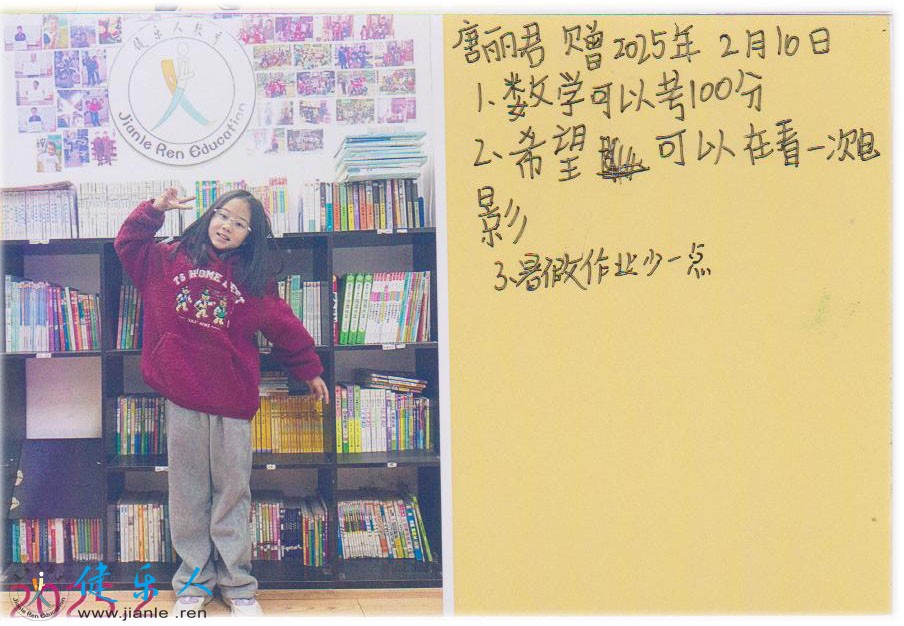 健乐人教育
Jianle Ren Education
唐丽君 赠 2025年 2月10日
1、数学可以考100分
2、希望 可以在看一次电
影
3、暑假作业少一点
健乐人
www.jianle .ren
Jianle Ren Education